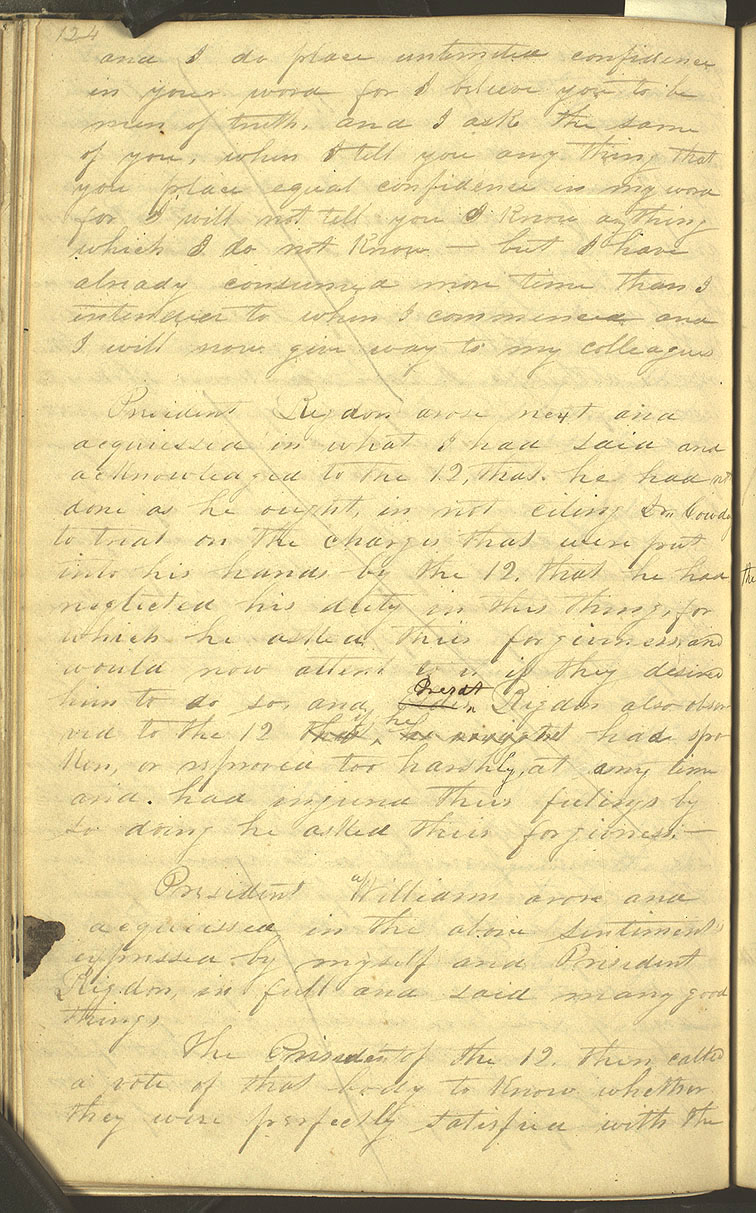 124
and I do place unlimited confidence
in your word for I believe you to be
men of truth, and I ask the same
of you, when I tell you any thing that
you place equal confidence in my word
for I will not tell you I know anything
which I do not know — but I have
already consumed more time than I
intended to when I commenced and
I will now give way to my colleagues
President Rigdon arose next and
acquiessed in what I had said and
acknowledged to the 12, that he had not
done as he ought, in not citing Dr. Cowdry
to trial on the charges that were put
into his hands by the 12, that he had
neglected his duty in this thing, for
which he asked their forgiveness, and
would now attend to it if they desired
him to do so, and Presdt Rigdon also obser
ved to the 12 that if he he might had spo
ken, or reproved too harshly, at any time
and had injured their feelings by
so doing he asked their forgivness. —
President Williams arose and
acquiessed in the above sentiment's
expressed by myself and President
Rigdon, in full and said many good
things
The President of the 12, then called
a vote of that body to know whether
they were perfectly satisfied with the
the